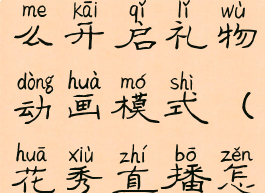 me kāi qǐ lǐ wù
么开启礼物
dòng huà mó shì
动画模式（
huā xiù zhí bō zěn
花秀直播怎